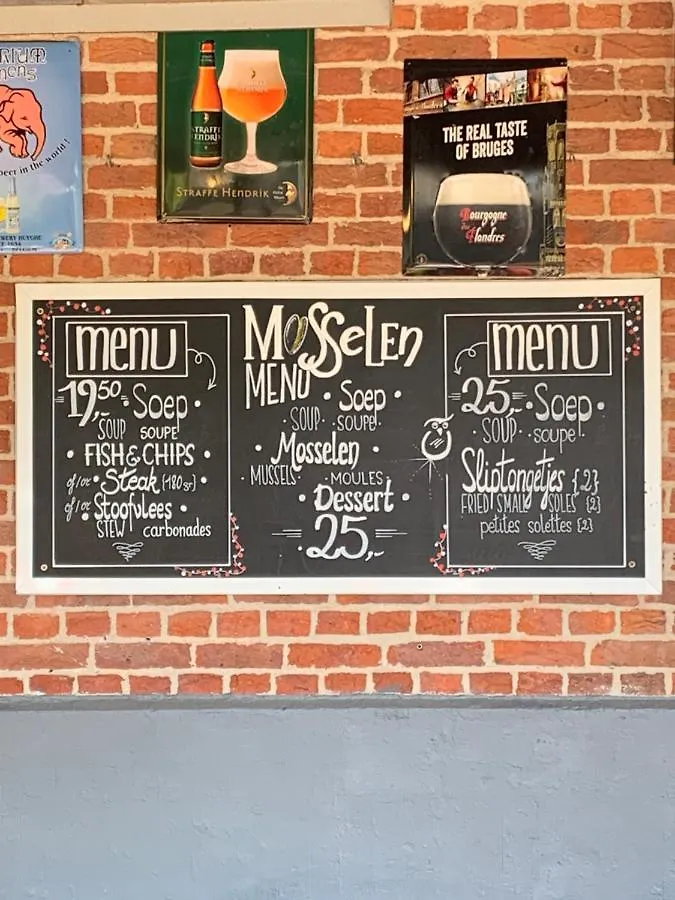 beer in the world!
STRAFFE
HENDRIK
STRAFFE HENDRIK
THE REAL TASTE
OF BRUGES
Bourgogne
des
Flandres
menu
19,50 Soep
SOUP SOUPE
FISH & CHIPS
of/or Steak (180 gr)
of/or Stoofvlees
STEW carbonades
MOSSELEN
MENU
Soep
SOUP SOUPE
Mosselen
MUSSELS MOULES
Dessert
25,-
menu
25,- Soep
SOUP soupe
Sliptongetjes {2}
FRIED SMALL SOLES {2}
petites solettes {2}